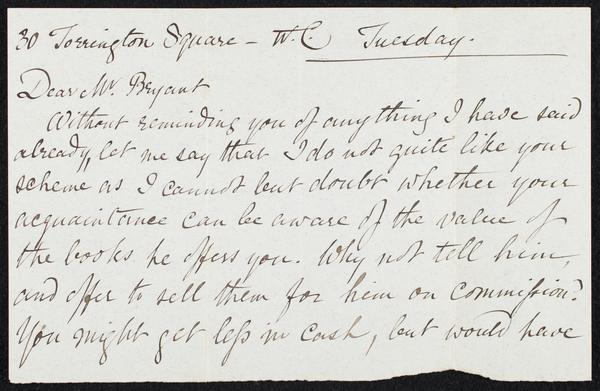 30 Torrington Square – W.C. Tuesday.
Dear Mr. Bryant
Without reminding you of anything I have said
already, let me say that I do not quite like your
scheme as I cannot but doubt whether your
acquaintance can be aware of the value of
the books he offers you. Why not tell him,
and offer to sell them for him on commission?
You might get less in cash, but would have